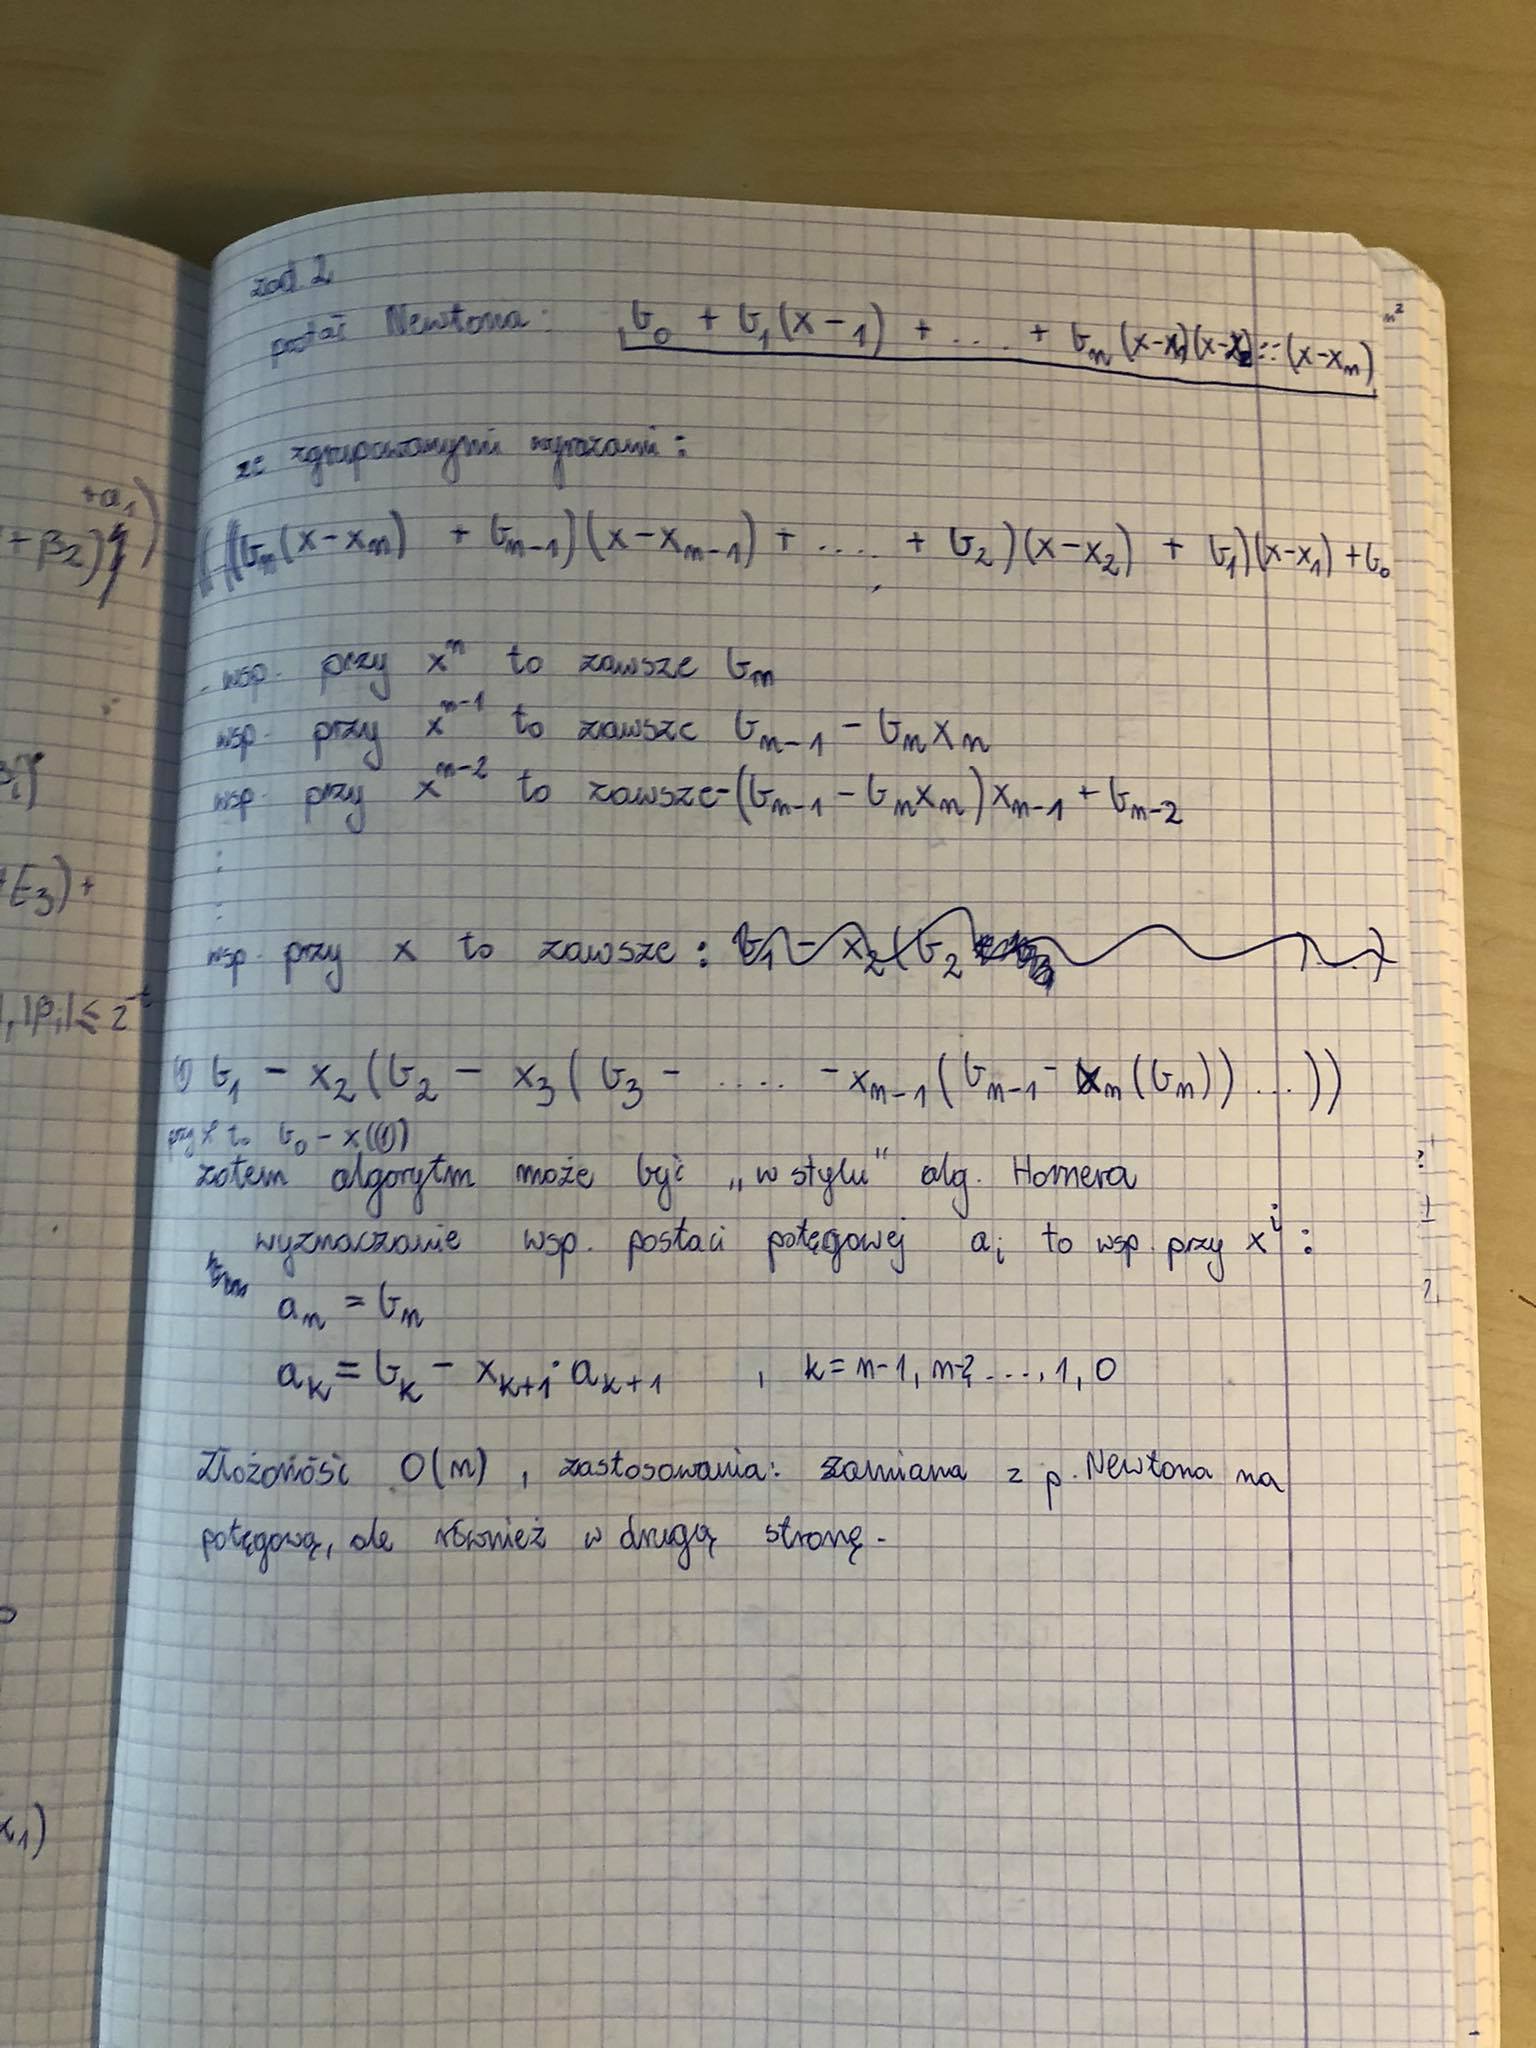 zad 2
postać Newtona: b₀ + b₁(x-1) + .... + bₙ(x-x₁)(x-x₂)...(x-xₙ)
ze zgrupowanymi wyrazami:
(((bₙ(x-xₙ) + bₙ₋₁)(x-xₙ₋₁) + .... + b₂)(x-x₂) + b₁)(x-x₁) + b₀
wsp. przy xⁿ to zawsze bₙ
wsp. przy xⁿ⁻¹ to zawsze bₙ₋₁ - bₙxₙ
wsp. przy xⁿ⁻² to zawsze -(bₙ₋₁ - bₙxₙ)xₙ₋₁ + bₙ₋₂
:
:
wsp. przy x to zawsze: b₁ - x₂(b₂
(1) b₁ - x₂(b₂ - x₃(b₃ - .... - xₙ₋₁(bₙ₋₁ - xₙ(bₙ))...))
b₀ - x((1))
zatem algorytm może być „w stylu" alg. Hornera
wyznaczanie wsp. postaci potęgowej aᵢ to wsp. przy xⁱ:
aₙ = bₙ
aₖ = bₖ - xₖ₊₁·aₖ₊₁ , k = n-1, n-2, ..., 1, 0
Złożoność O(n), zastosowania: zamiana z p. Newtona na
potęgową, ale również w drugą stronę.
+a₁)
+β₂)})
+E₃)+
|, |βᵢ| ≤ 2⁻ᵗ
x₁)
n²